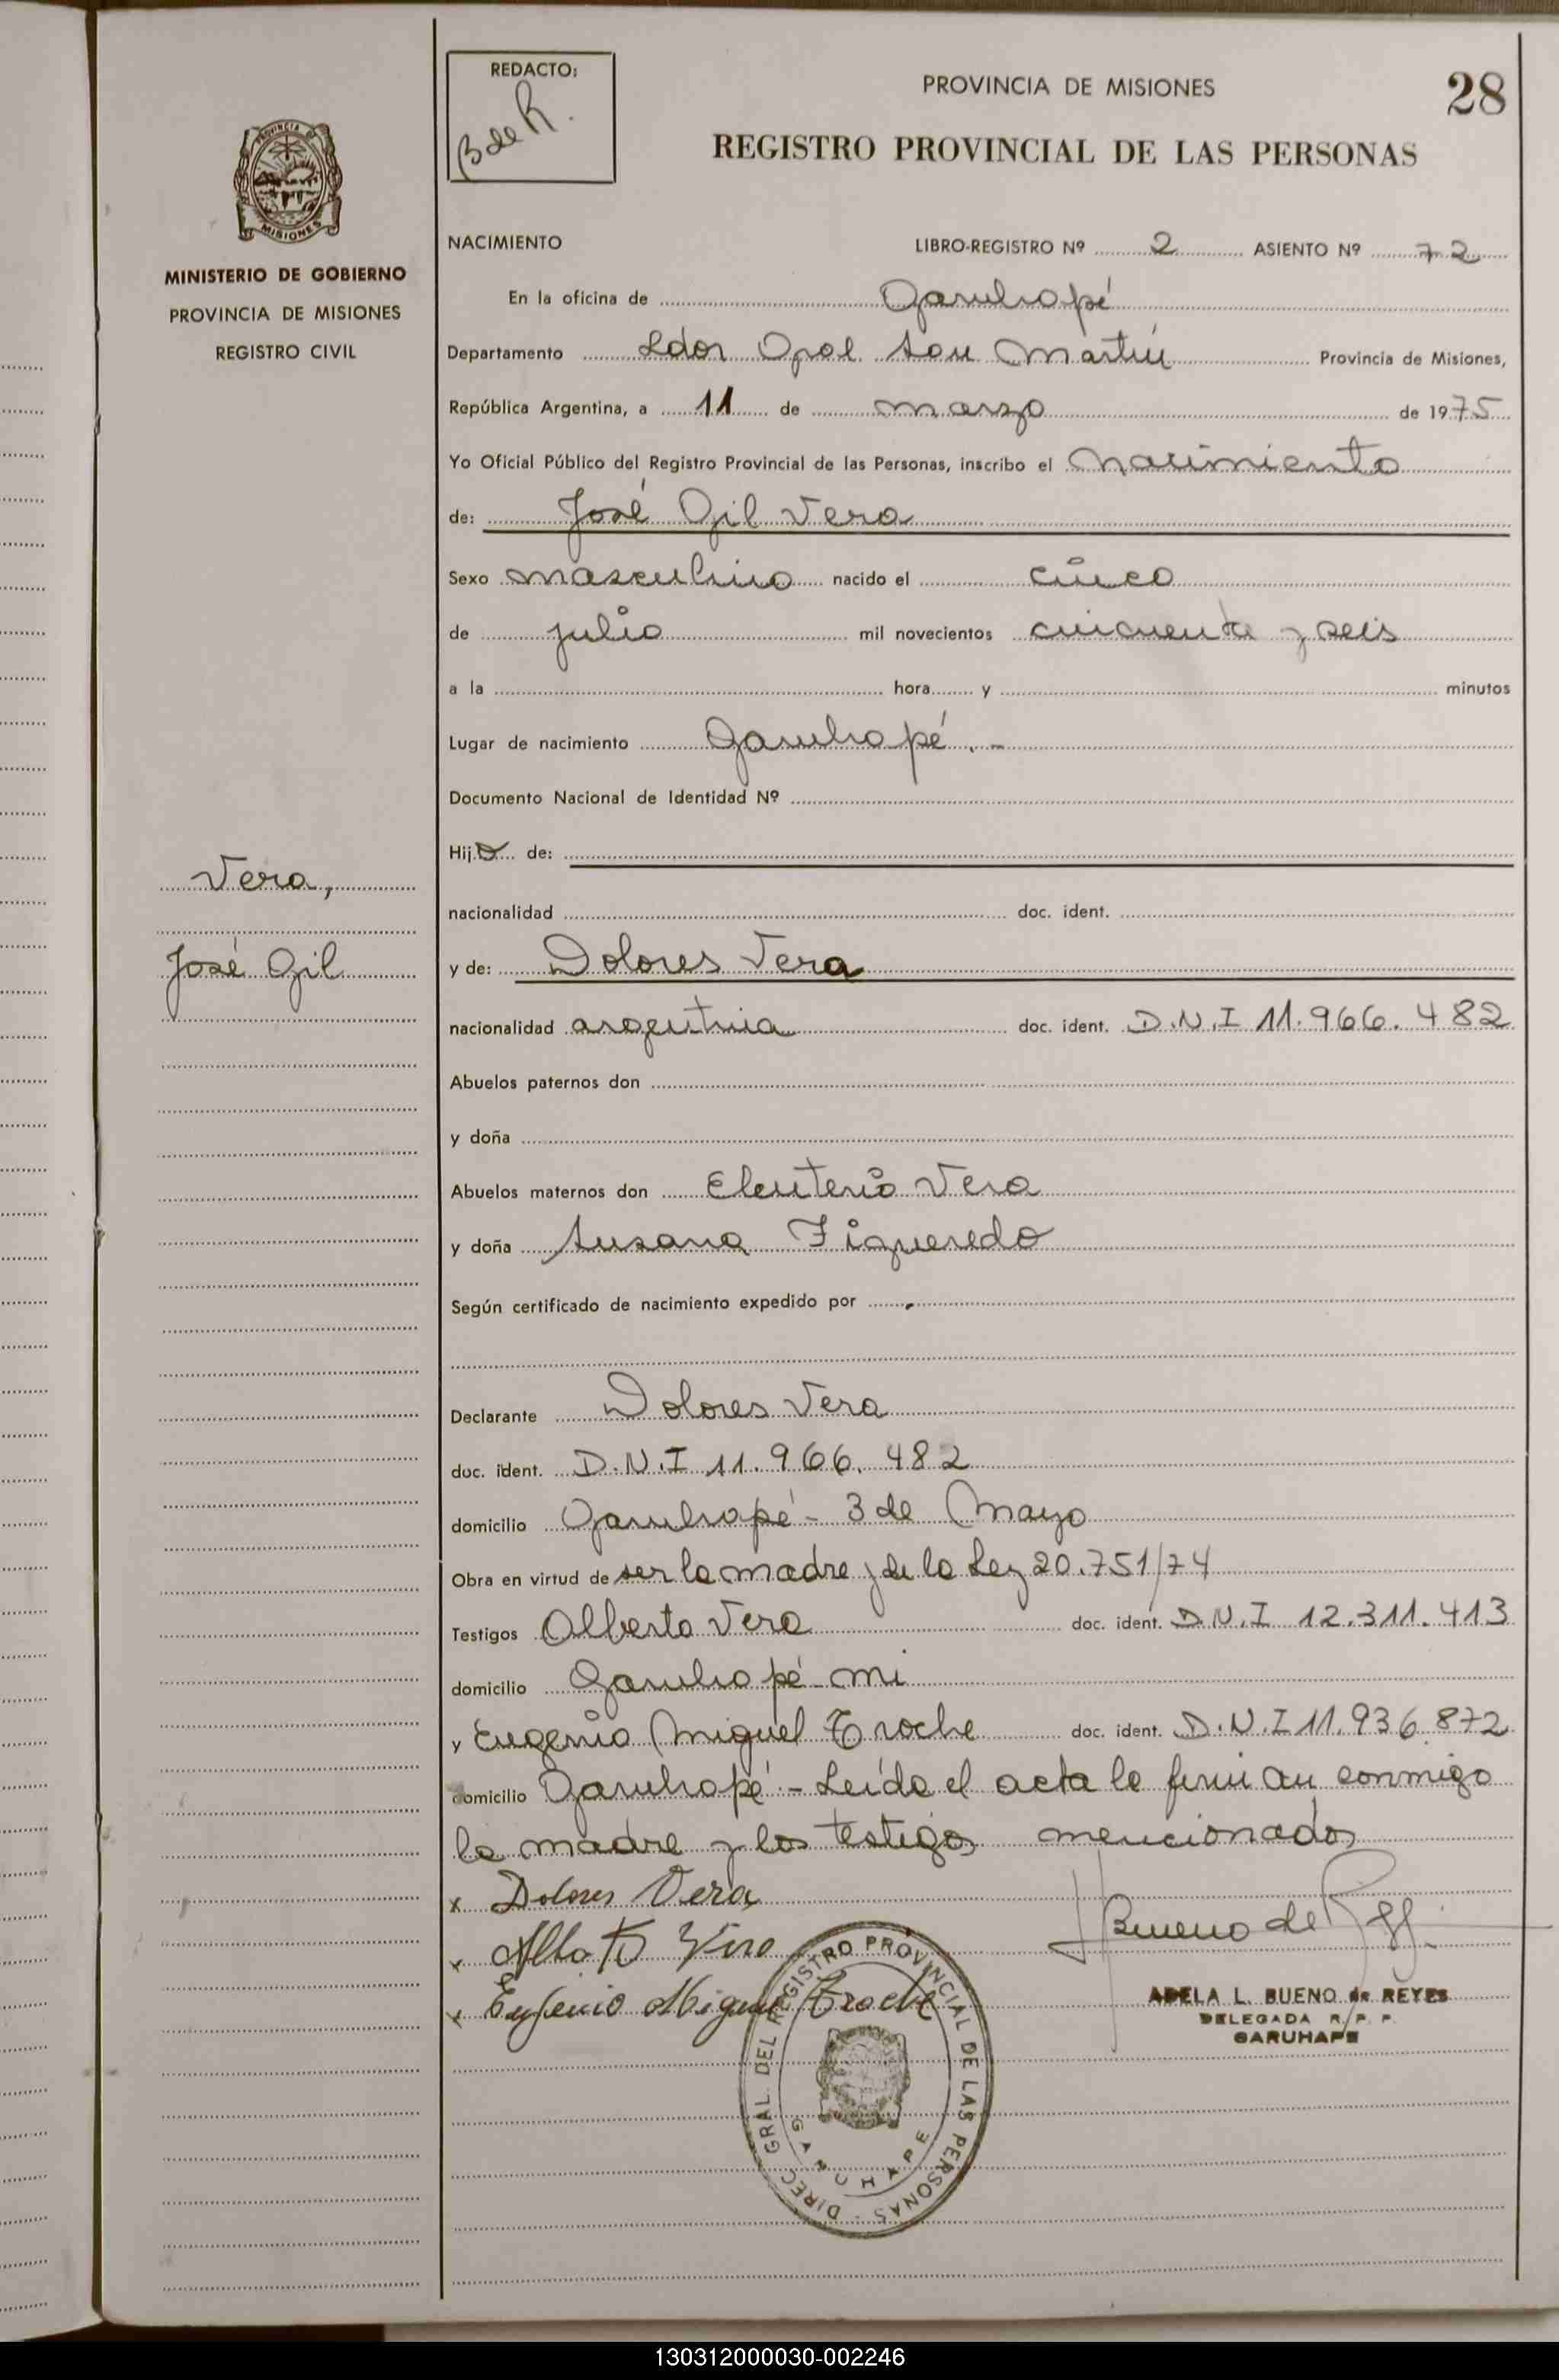 REDACTO:
B de R.
PROVINCIA DE MISIONES
28
REGISTRO PROVINCIAL DE LAS PERSONAS
PROVINCIA DE
MISIONES
MINISTERIO DE GOBIERNO
PROVINCIA DE MISIONES
REGISTRO CIVIL
NACIMIENTO LIBRO-REGISTRO Nº 2 ASIENTO Nº 72
En la oficina de Garuhapé
Departamento Ldor Gral San Martín Provincia de Misiones,
República Argentina, a 11 de marzo de 1975
Yo Oficial Público del Registro Provincial de las Personas, inscribo el nacimiento
de: José Gil Vera
Sexo masculino nacido el cinco
de julio mil novecientos cincuenta y seis
a la hora y minutos
Lugar de nacimiento Garuhapé.-
Documento Nacional de Identidad Nº
Hijo de:
Vera,
José Gil
nacionalidad doc. ident.
y de: Dolores Vera
nacionalidad argentina doc. ident. D.N.I 11.966.482
Abuelos paternos don
y doña
Abuelos maternos don Eleuterio Vera
y doña Susana Figueredo
Según certificado de nacimiento expedido por
Declarante Dolores Vera
doc. ident. D.N.I 11.966.482
domicilio Garuhapé - 3 de Mayo
Obra en virtud de ser la madre y de la Ley 20.751/74
Testigos Alberto Vera doc. ident. D.N.I 12.311.413
domicilio Garuhapé - mi
y Eugenio Miguel Troche doc. ident. D.N.I 11.936.872
domicilio Garuhapé - Leída el acta la firman conmigo
la madre y los testigos mencionados
x Dolores Vera
x Alberto Vera
x Eugenio Miguel Troche
Bueno de
ADELA L. BUENO de REYES
DELEGADA R. P. P.
GARUHAPE
DIREC. GRAL. DEL REGISTRO PROVINCIAL DE LAS PERSONAS
GARUHAPE
130312000030-002246